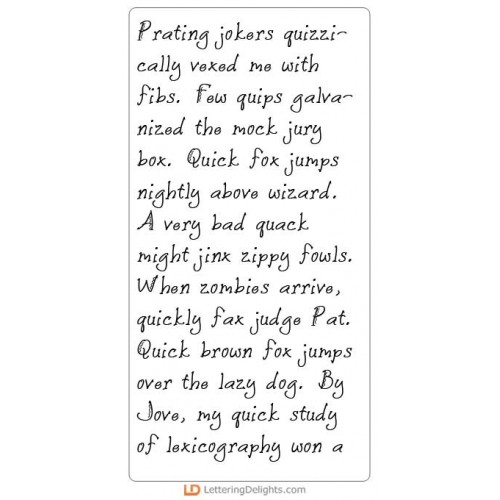 Prating jokers quizzi-
cally vexed me with
fibs. Few quips galva-
nized the mock jury
box. Quick fox jumps
nightly above wizard.
A very bad quack
might jinx zippy fowls.
When zombies arrive,
quickly fax judge Pat.
Quick brown fox jumps
over the lazy dog. By
Jove, my quick study
of lexicography won a
LD LetteringDelights.com